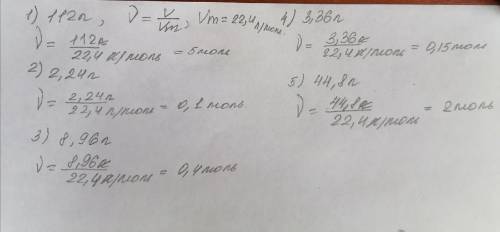 1) 112л, ν = V/Vm, Vm = 22,4 л/моль.
ν = 112л / 22,4 л/моль = 5 моль
2) 2,24л
ν = 2,24л / 22,4 л/моль = 0,1 моль
3) 8,96л
ν = 8,96л / 22,4 л/моль = 0,4 моль
4) 3,36л
ν = 3,36л / 22,4 л/моль = 0,15 моль
5) 44,8л
ν = 44,8л / 22,4 л/моль = 2 моль